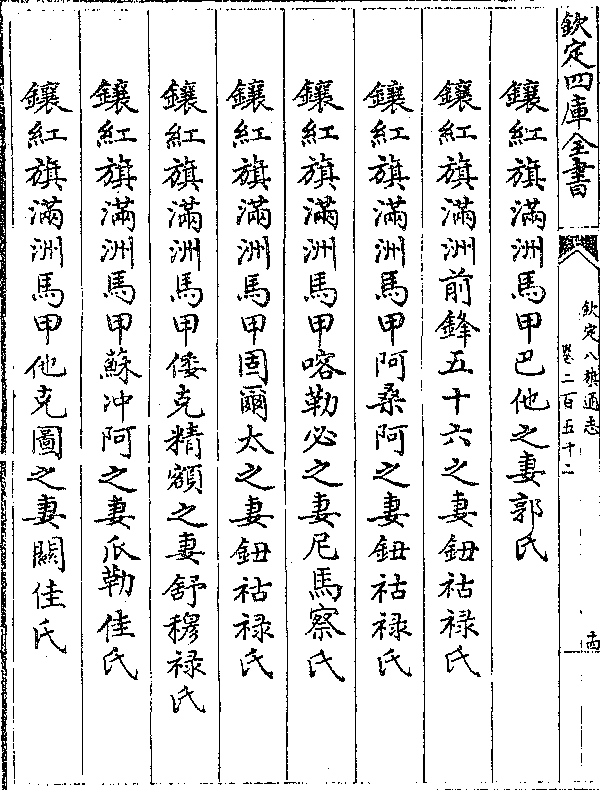 欽定四庫全書
欽定八旗通志
卷二百五十二
十四
鑲紅旗滿洲馬甲巴他之妻郭氏
鑲紅旗滿洲前鋒五十六之妻鈕祜禄氏
鑲紅旗滿洲馬甲阿桑阿之妻鈕祜禄氏
鑲紅旗滿洲馬甲喀勒必之妻尼馬察氏
鑲紅旗滿洲馬甲固爾太之妻鈕祜禄氏
鑲紅旗滿洲馬甲倭克精額之妻舒穆禄氏
鑲紅旗滿洲馬甲蘇冲阿之妻瓜勒佳氏
鑲紅旗滿洲馬甲他克圖之妻關佳氏